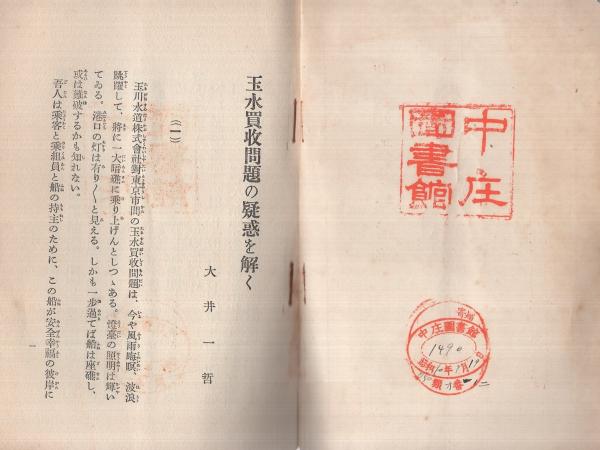 中庄
圖書館
中庄圖書館
1490
玉水買收問題の疑惑を解く
大井一哲
(一)
玉川水道株式會社對東京市間の玉水買收問題は、今や風雨晦瞑、波浪
跳躍して、將に一大暗礁に乘り上げんとしつゝある。燈臺の照明は輝い
てゐる。港口の灯は有り〳〵と見える。しかも一步過てば船は座礁し、
或は難破するかも知れない。
吾人は乘客と乘組員と船の持主のために、この船が安全幸福の彼岸に
一